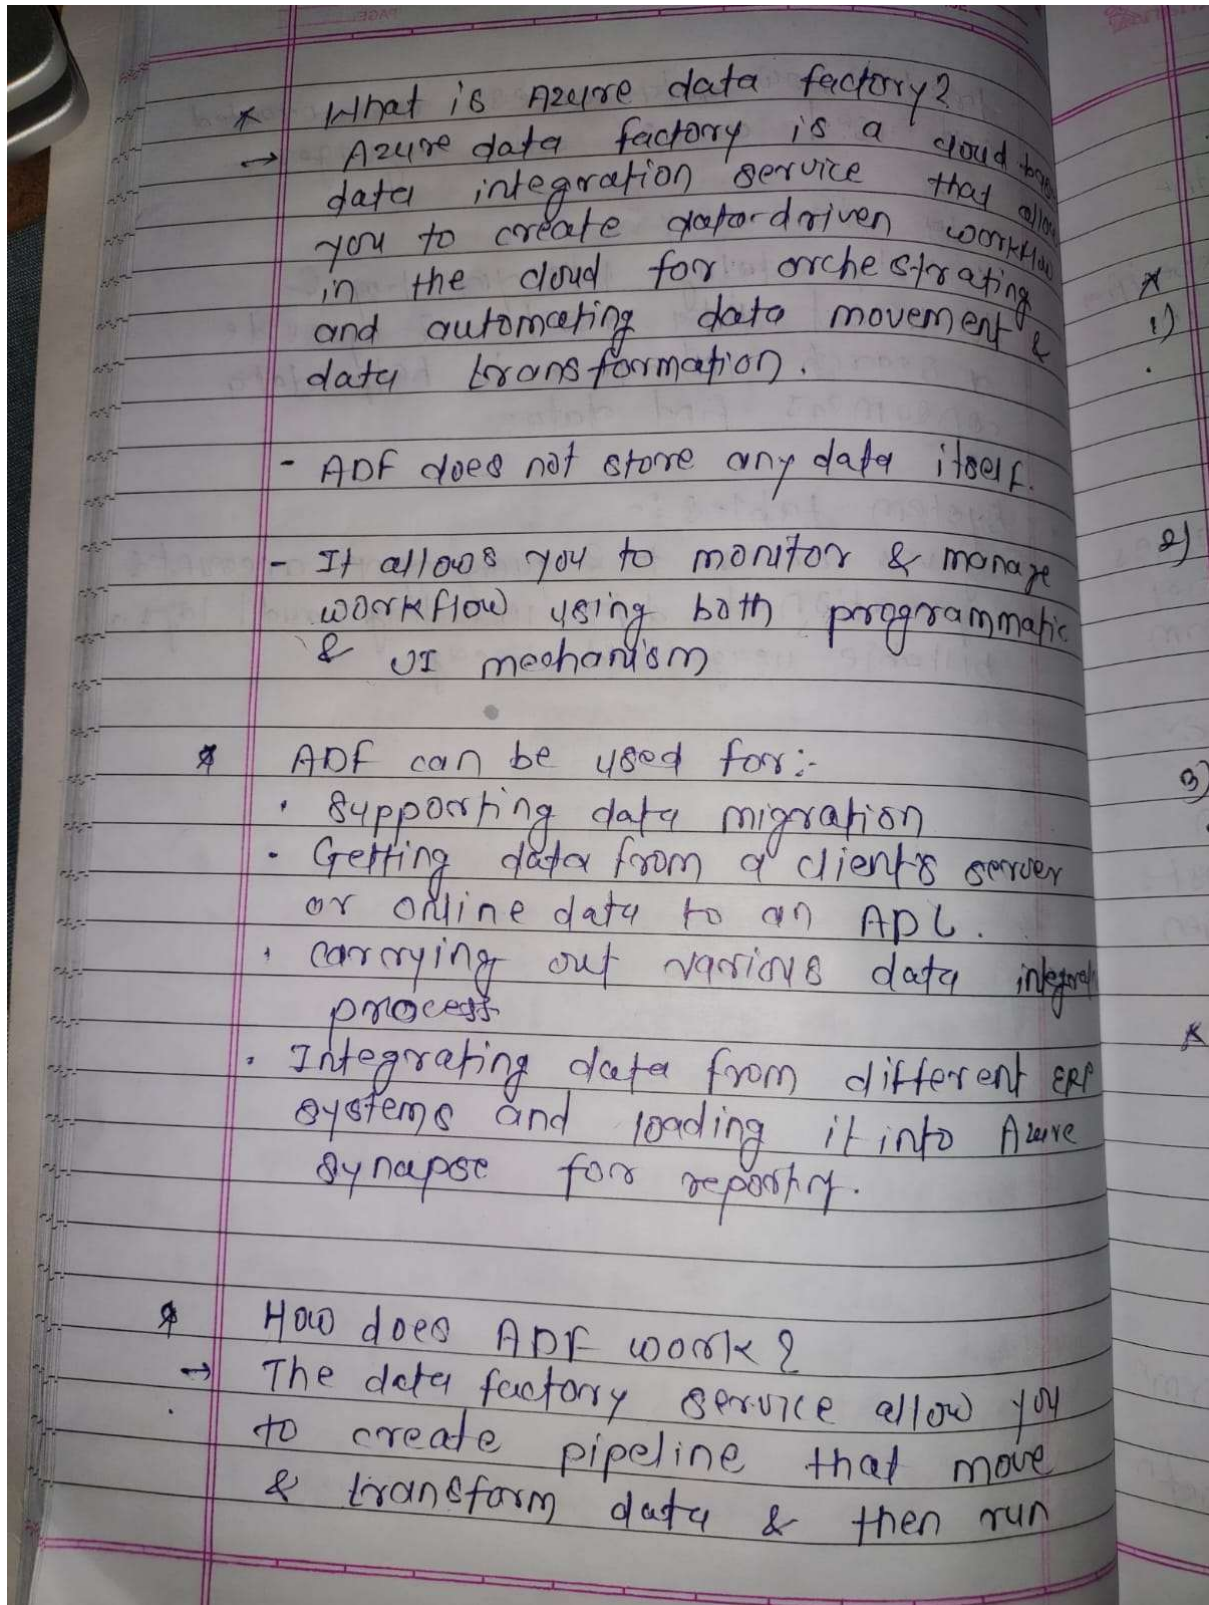 * What is Azure data factory?
→ Azure data factory is a cloud
data integration service that allow
you to create data-driven workflow
in the cloud for orchestrating
and automating data movement &
data transformation.
- ADF does not store any data itself.
- It allows you to monitor & manage
workflow using both programmatic
& UI mechanism
* ADF can be used for:-
· Supporting data migration
· Getting data from a client's server
or online data to an ADL.
· carrying out various data
process
· Integrating data from different ERP
systems and loading it into Azure
Synapse for reporting.
* How does ADF work?
→ The data factory service allow you
to create pipeline that move
& transform data & then run
*
1)
2)
3)
*